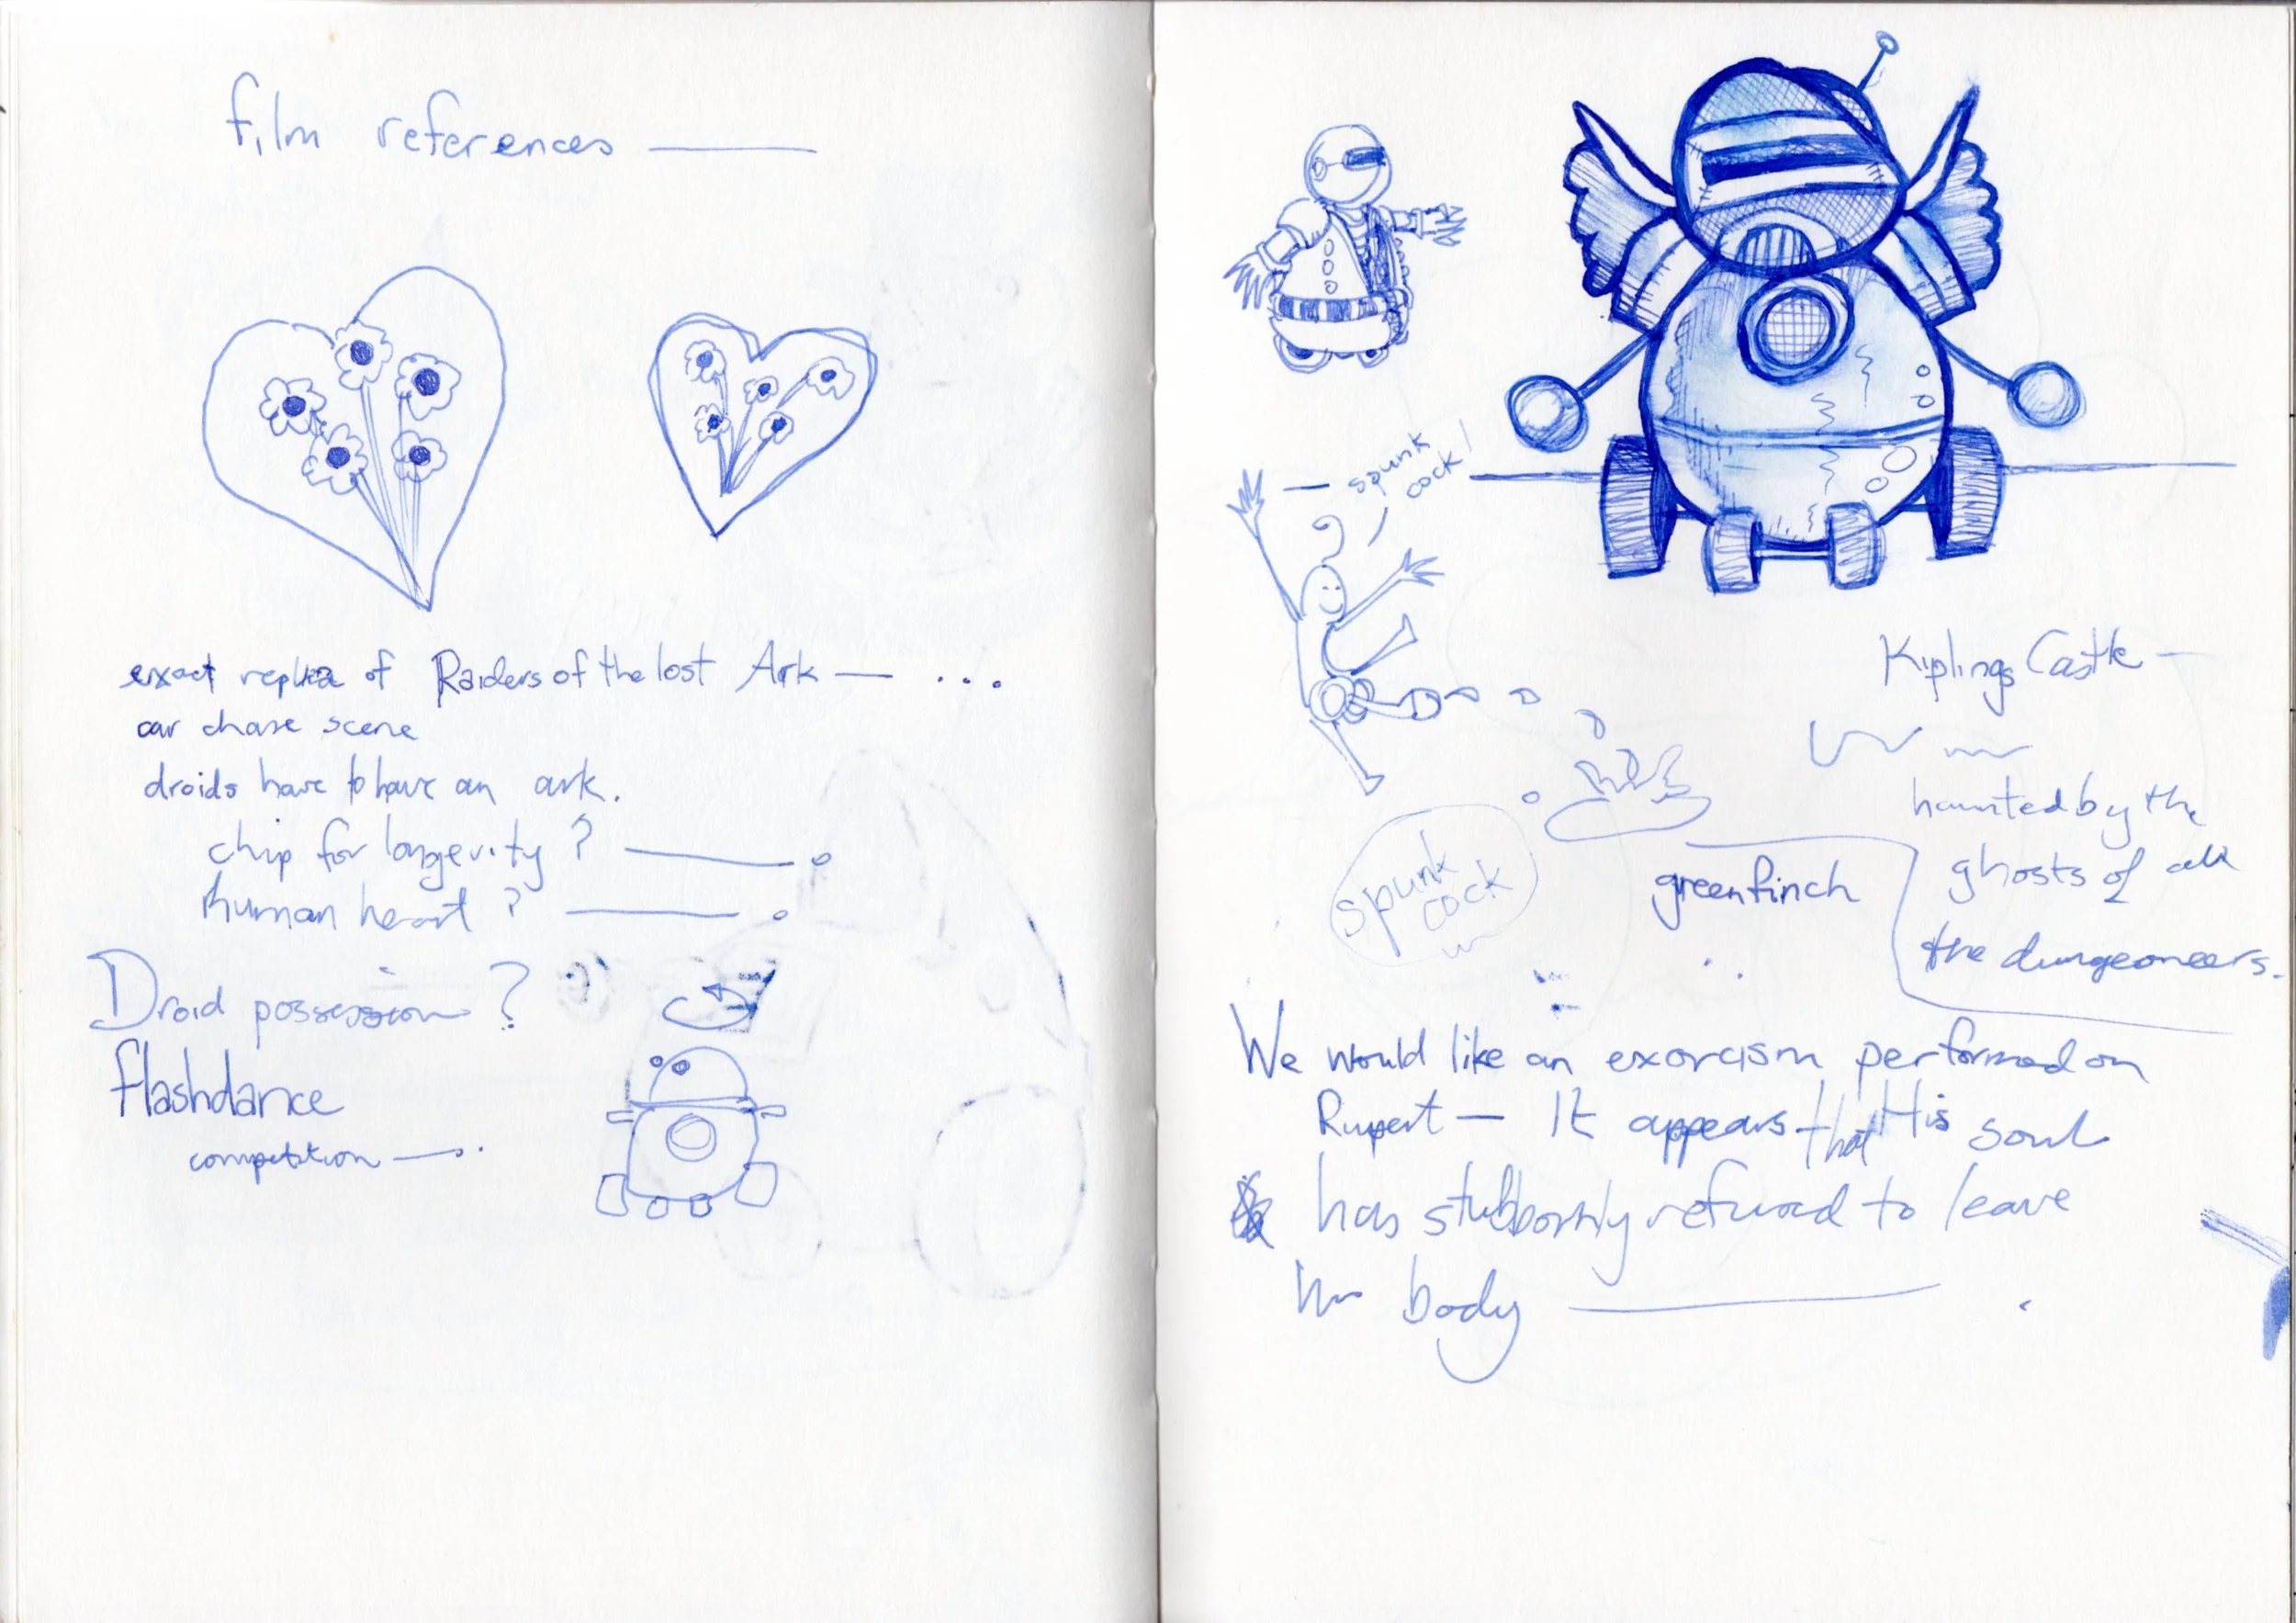 film references
exact replica of Raiders of the lost Ark — ...
car chase scene
droids have to have an ark.
chip for longevity ?
human heart ?
Droid possession ?
flashdance
competition — .
— spunk
cock!
Kiplings Castle —
haunted by the
ghosts of all
the dungeoneers.
spunk
cock
greenfinch
We would like an exorcism performed on
Rupert — It appears that His soul
has stubbornly refused to leave
his body